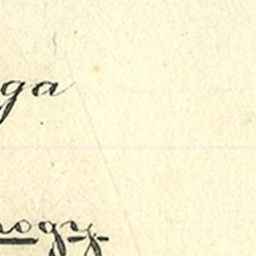 ga
nogy